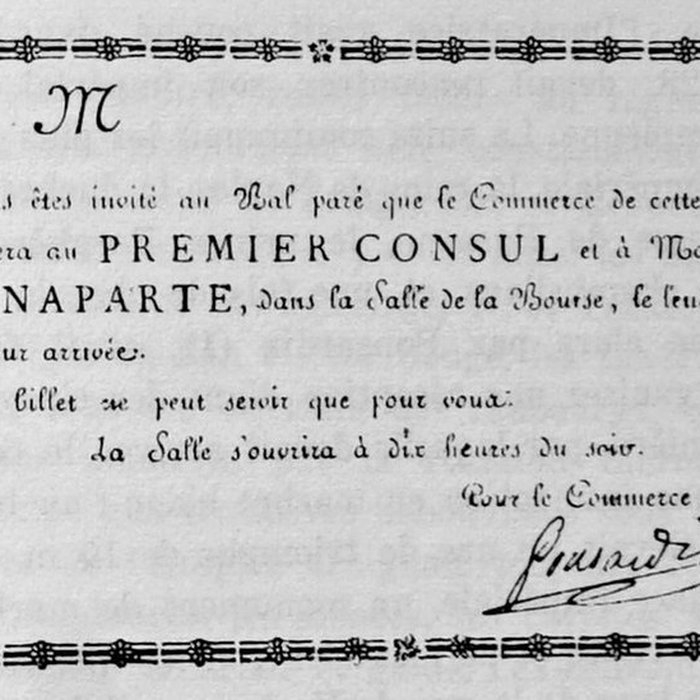 M
s êtes invité au Bal paré que le Commerce de cette
era au PREMIER CONSUL et à Ma
NAPARTE, dans la Salle de la Bourse, le leu
ur arrivée.
billet ne peut servir que pour vous.
La Salle s'ouvrira à dix heures du soir.
Pour le Commerce,